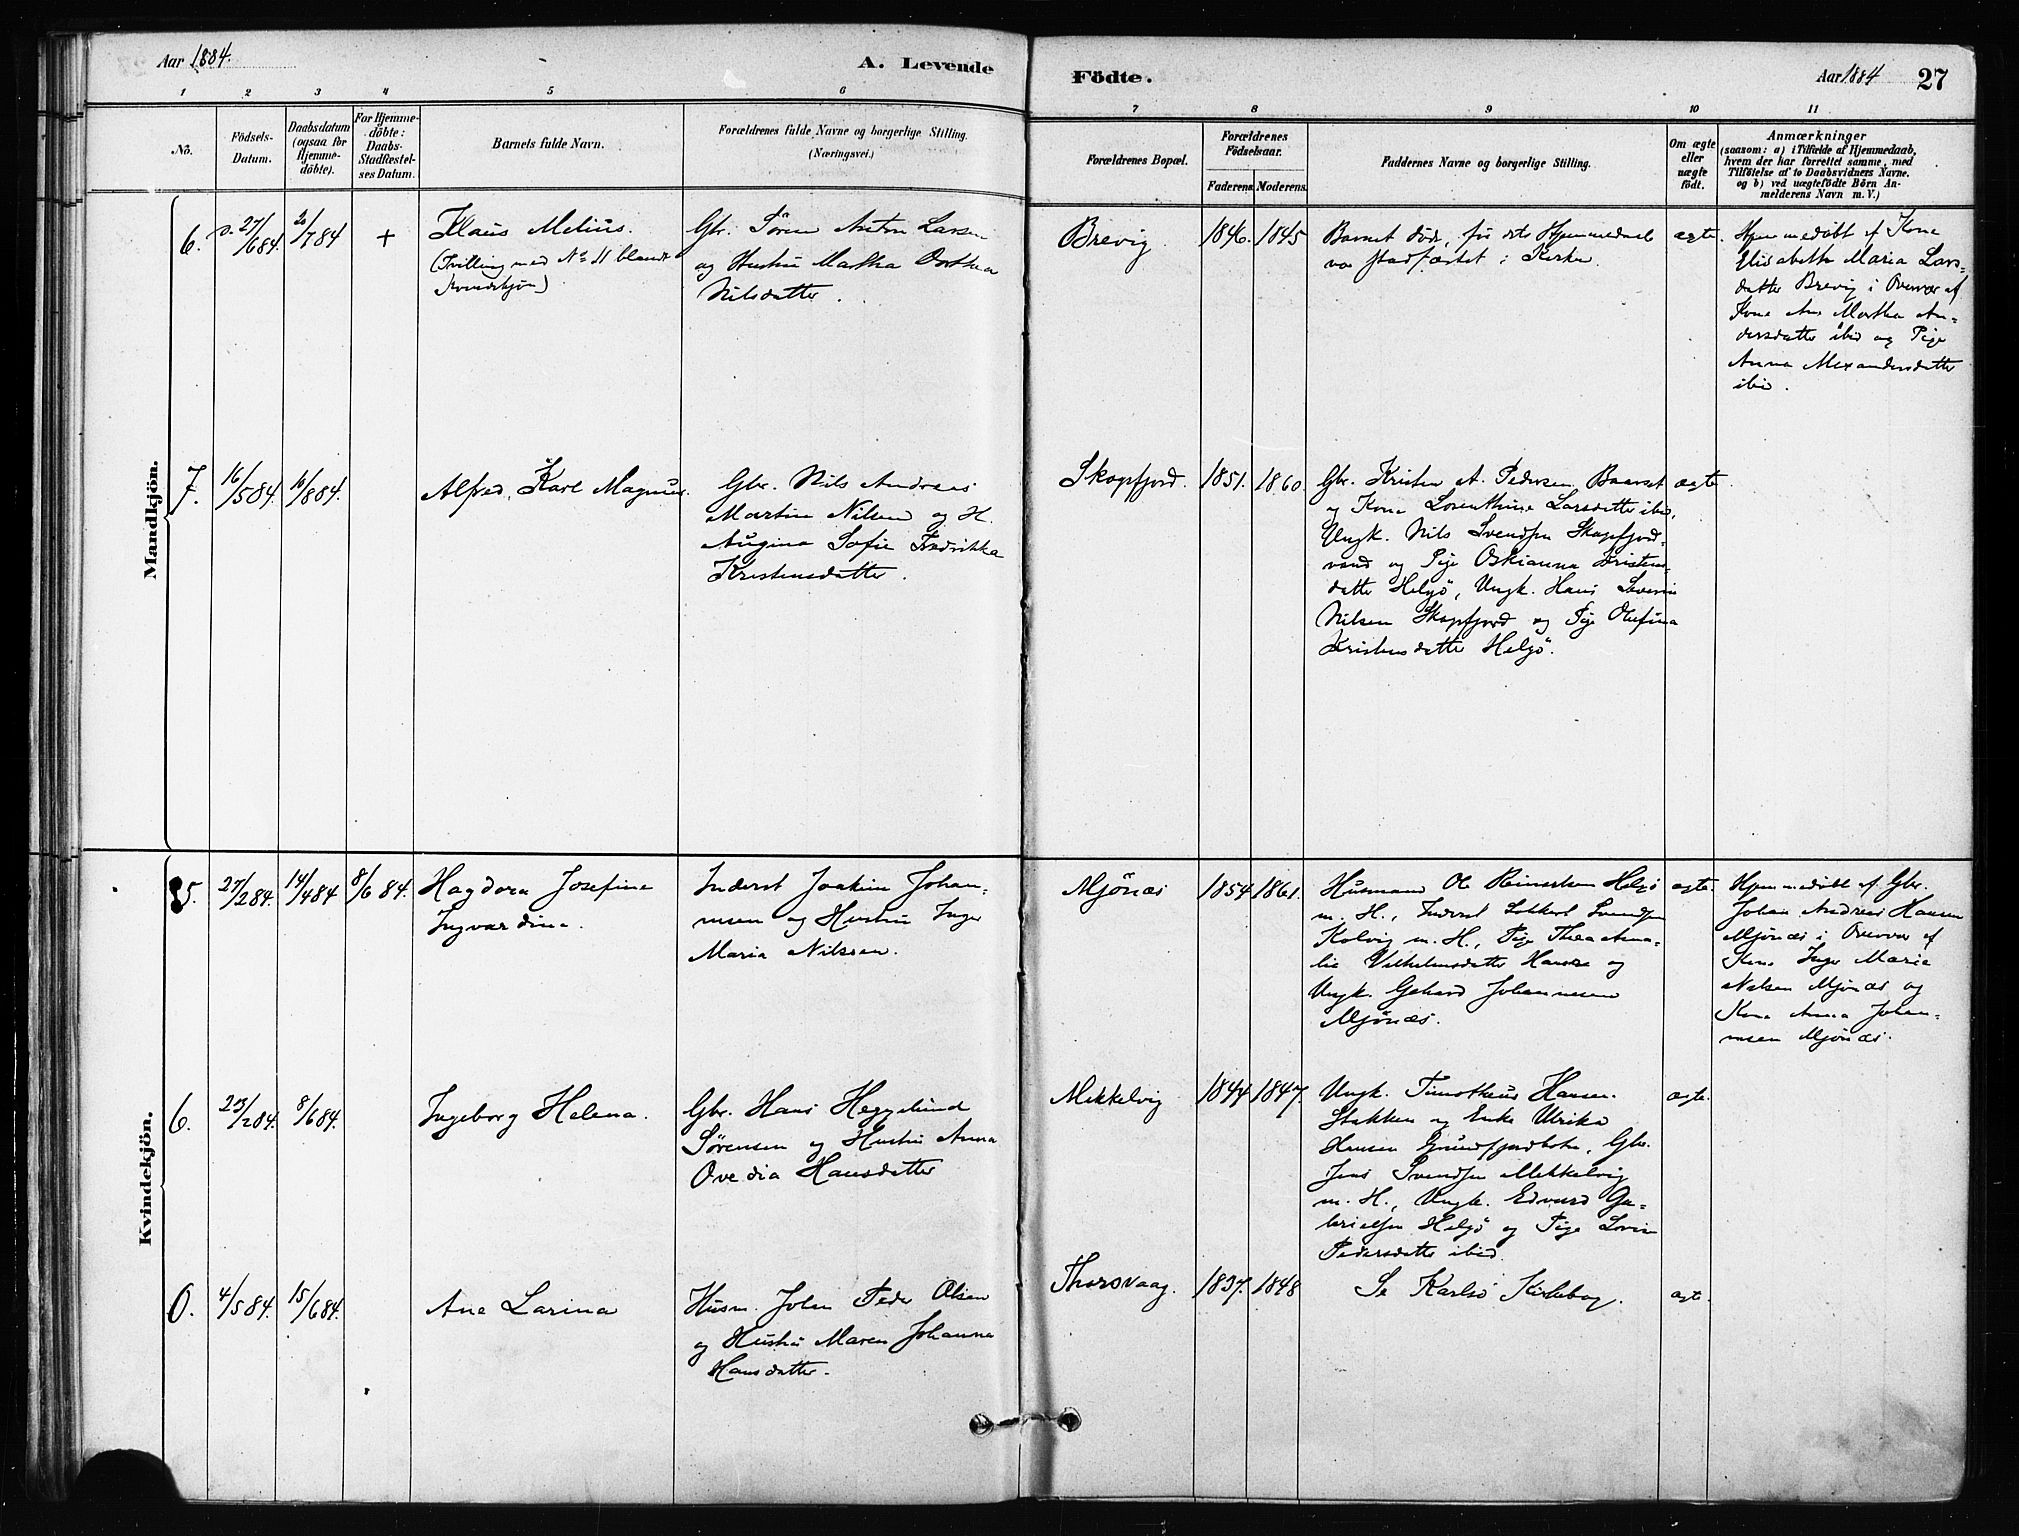 Aar 1884.
A. Levende
Födte.
Aar 1884
27
1 2 3 4 5 6 7 8 9 10 11
No.
Födsels-
Datum.
Daabsdatum
(ogsaa for
Hjemme-
döbte).
For Hjemme-
döbte:
Daabs-
Stadfæstel-
ses Datum.
Barnets fulde Navn.
Forældrenes fulde Navne og borgerlige Stilling.
(Næringsvei.)
Forældrenes Bopæl.
Forældrenes
Födselsaar.
Faderens. Moderens.
Faddernes Navne og borgerlige Stilling.
Om ægte
eller
uægte
födt.
Anmærkninger
(saasom: a) i Tilfælde af Hjemmedaab,
hvem der har forrettet samme, med
Tilföielse af to Daabsvidners Navne.
og b) ved uægtefödte Börn An-
melderens Navn m. V.)
Mandkjön.
6.
27/684
20/784
+
Klaus Melius.
(Tvilling med No 11 blandt
Kvindekjön)
Gbr. Sören Anton Larsen
og Hustru Martha Dorthea
Nilsdatter.
Brevig.
1846. 1845
Barnet döde, för dets Hjemmedaab
var stadfæstet i Kirken.
ægte.
Hjemmedöbt af Kone
Elisabeth Maria Lars-
datter Brevig i Overvær af
Kone Ane Martha An-
dersdatter ibid og Pige
Anna Alexandersdatter
ibid.
7.
16/584.
10/884.
Alfred Karl Magnus.
Gbr. Nils Andreas
Martin Nilsen og H.
Augina Sofie Fredrikka
Kristensdatter.
Skogsfjord.
1851. 1860.
Gbr. Kristen A. Pedersen
og Kone Lorenthine Larsdatter ibid,
Ungk. Nils Svendsen Skogsfjord-
vand og Pige Oskianna Kristens-
datter Helgö, Ungk. Hans Severin
Nilsen Skogsfjord og Pige Olufina
Kristensdatter Helgö.
ægte.
Kvindekjön.
5.
27/284.
14/484
8/684.
Hagdora Josefine
Ingvardine.
Inderst Joakim Johan-
nesen og Hustru Inger
Maria Nilsen.
Mjönæs
1854 1861.
Husmand Ole Reinertsen Helgö
m. H., Inderst Lokkert Svendsen
Kolvig m. H., Pige Thea Ama-
lie Vilhelmsdatter og
Ungk. Gehard Johannesen
Mjönæs.
ægte.
Hjemmedöbt af Gbr.
Johan Andreas Hansen
Mjönæs i Overvær af
Kone Inger Maria
Nilsen Mjönæs og
Kone Anna Johan-
nesen Mjönæs.
6.
23/284.
8/684.
Ingeborg Helena.
Gbr. Hans Heggelund
Sörensen og Hustru Anna
Ovedia Hansdatter
Mekkelvig
1844 1847.
Ungk. Timotheus Hansen
Stakken og Enke Ulrika
Hansen Grundfjordbotn, Gbr.
Jens Svendsen Mekkelvig
m. H., Ungk. Edvard Ga-
brielsen Helgö og Pige Lovise
Pedersdatter ibid.
ægte.
0.
4/584.
15/684.
Ane Larina
Husm. Johan Peder Olsen
og Hustru Maren Johanna
Hansdatter.
Thorsvaag.
1837. 1848
Se Karlsö Kirkebog.
ægte.